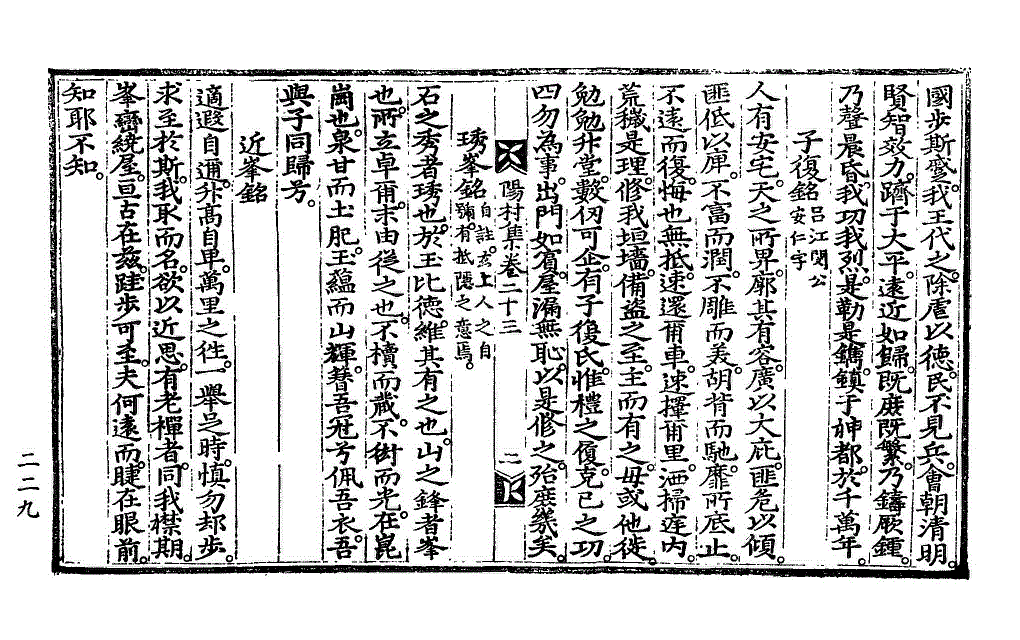 國步斯蹙。我王代之。除虐以德。民不見兵。會朝清明。
賢智效力。躋于大平。遠近如歸。旣庶旣繁。乃鑄厥鍾。
乃聲晨昏。我功我烈。是勒是鐫。鎭于神都。於千萬年。
子復銘 呂江閔公安仁字
人有安宅。天之所畀。廓其有容。廣以大庇。匪危以傾。
匪低以庳。不富而潤。不雕而美。胡背而馳。靡所底止。
不遠而復。悔也無抵。速還爾車。速擇爾里。洒掃庭內。
荒穢是理。修我垣墻。備盜之至。主而有之。毋或他徙。
勉勉升堂。數仞可企。有子復氏。惟禮之履。克己之功。
四勿為事。出門如賓。屋漏無恥。以是修之。殆庶幾矣。
陽村集卷二十三 二
琇峯銘 自註。玄上人之自號。有抵隱之意焉。
石之秀者琇也。於玉比德。維其有之也。山之鋒者峯
也。所立卓爾。末由從之也。不櫝而藏。不衒而光。在崑
崗也。泉甘而土肥。玉蘊而山輝。替吾冠兮佩吾衣。吾
與子同歸兮。
近峯銘
適遐自邇。升高自卑。萬里之徃。一擧足時。愼勿却步。
求至於斯。我取而名。欲以近思。有老禪者。同我襟期。
峯齊繞屋。亘古在玆。跬步可至。夫何遠而。睫在眼前。
知耶不知。
二二九